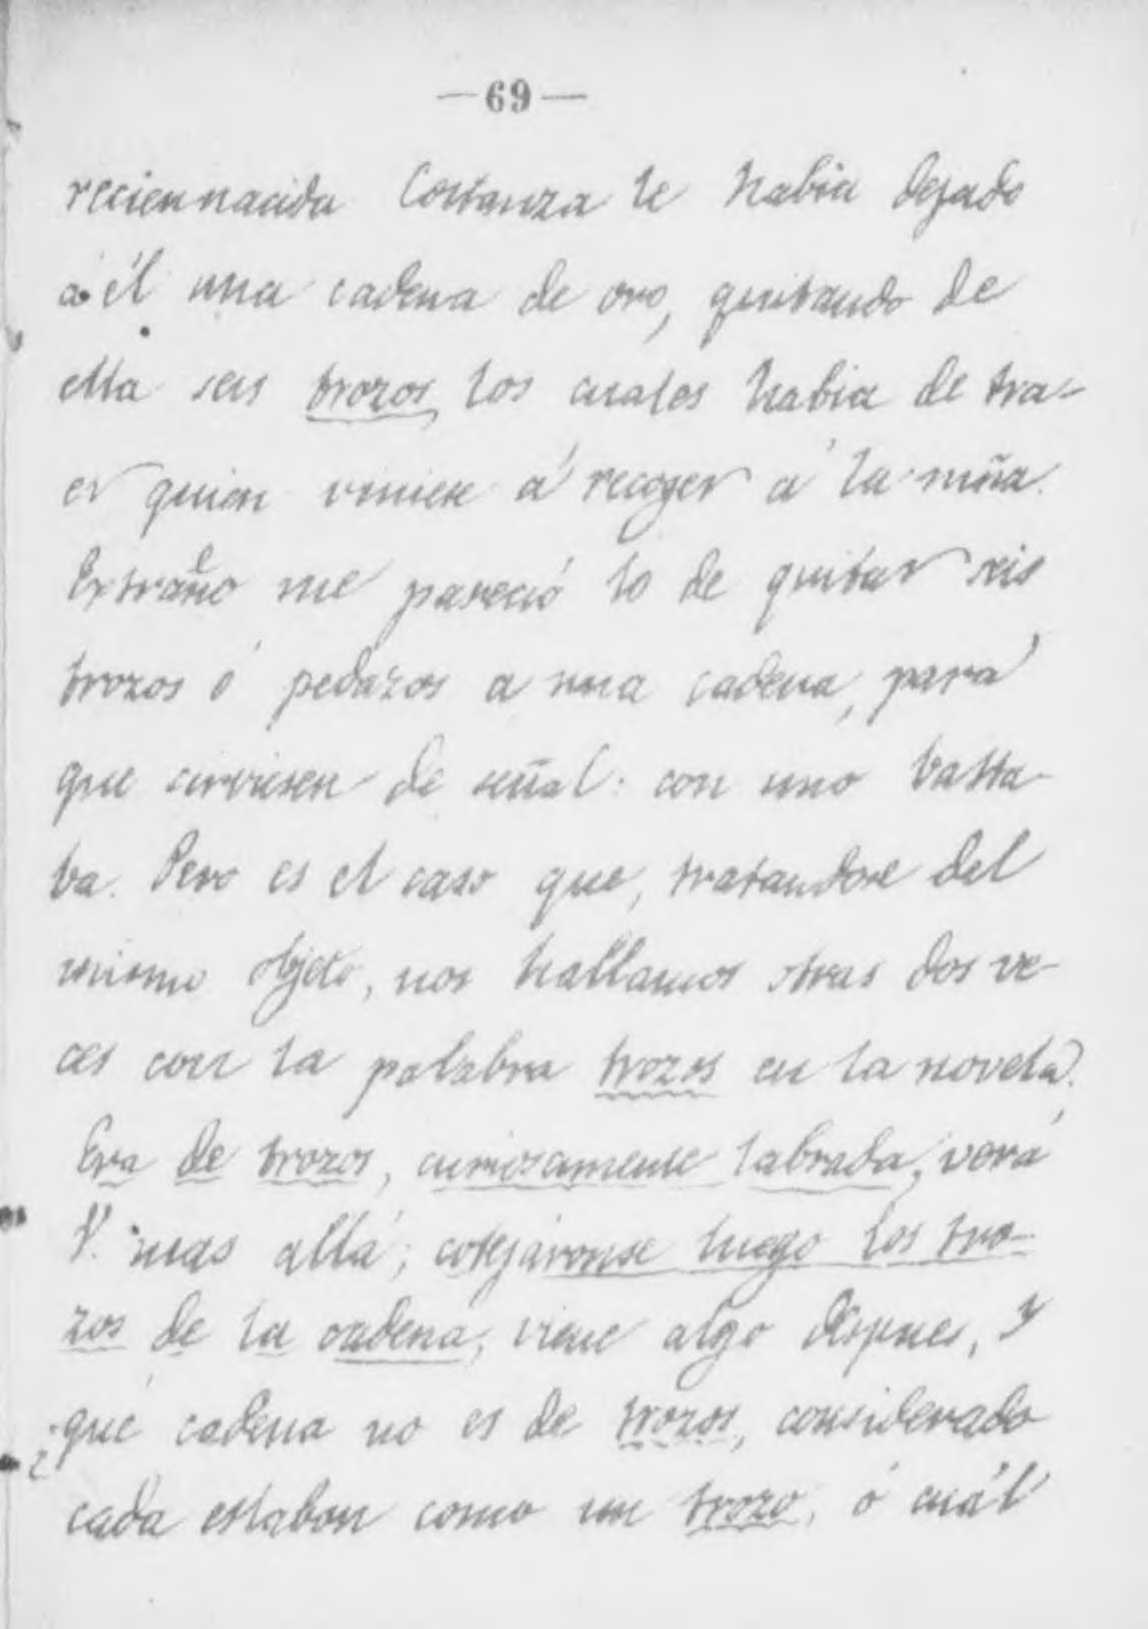 —69—
reciennacida Costanza le habia dejado
a él una cadena de oro, quitando de
ella seis trozos, los cuales habia de tra-
er quien viniese á recoger á la niña.
Extraño me pareció lo de quitar seis
trozos ó pedazos a una cadena, para
que sirviesen de señal: con uno basta-
ba. Pero es el caso que, tratandose del
mismo objeto, nos hallamos otras dos ve-
ces con la palabra trozos en la novela.
Era de trozos, curiosamente labrada, verá
V. mas allá; cotejáronse luego los tro-
zos de la cadena, viene algo despues, y
¿qué cadena no es de trozos, considerado
cada eslabon como un trozo, ó cuál